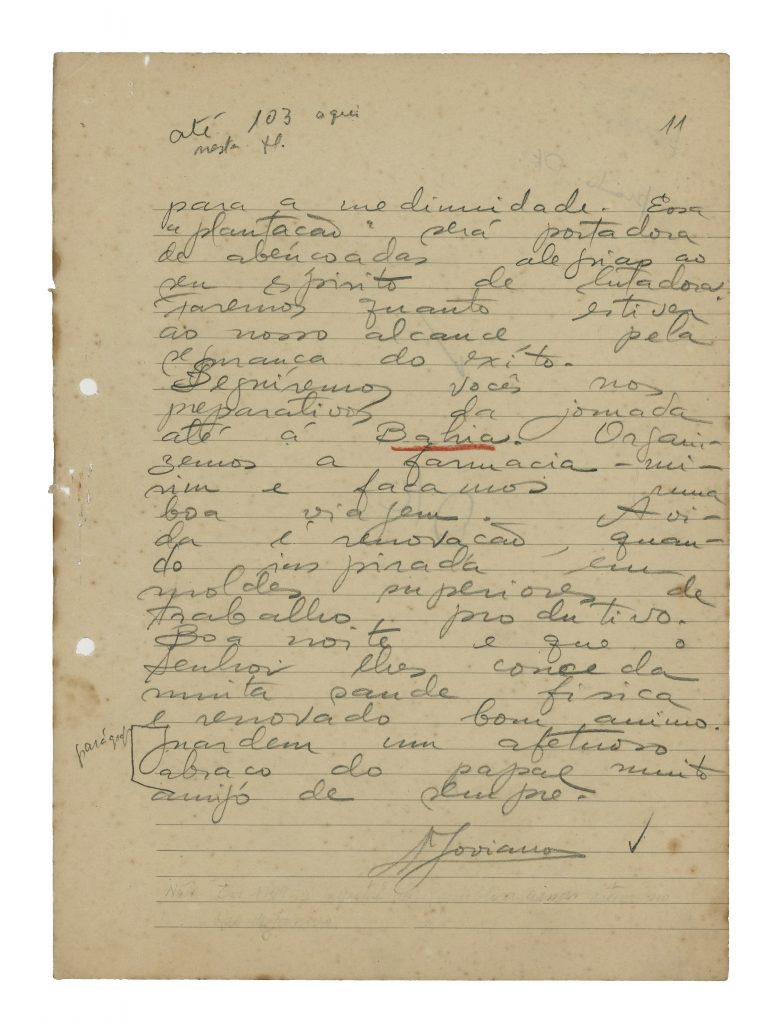 até 103 aqui
nesta fl.
11
para a mediunidade. Essa
"plantação" será portadora
de abençoadas alegrias ao
seu espirito de lutadora.
Faremos quanto estiver
ao nosso alcance pela
segurança do exíto.
Seguiremos vocês nos
preparativos da jornada
até á Bahia. Organi-
zemos a farmacia-mi-
rim e façamos uma
boa viagem. A vi-
da é renovação, quan-
do inspirada em
moldes superiores de
trabalho produtivo.
Boa noite e que o
Senhor lhes conceda
muita saude fisica
e renovado bom animo.
parágrafo
Guardem um afetuoso
abraço do papae muito
amigo de sempre.
A Joviano